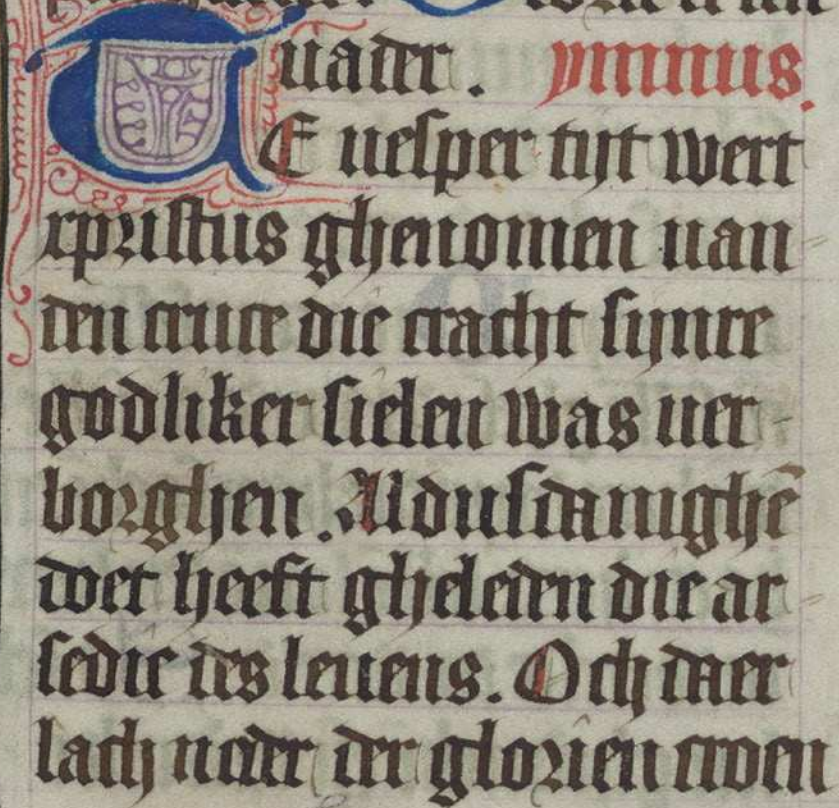 uader. ymnus.
TE uesper tijt wert
xpristus ghenomen uan
den cruce die cracht sijnre
godliker sielen was uer-
borghen. Aldusdanighē
doet heeft gheleden die ar
sedie des leuens. Och daer
lach neder der glorien croen